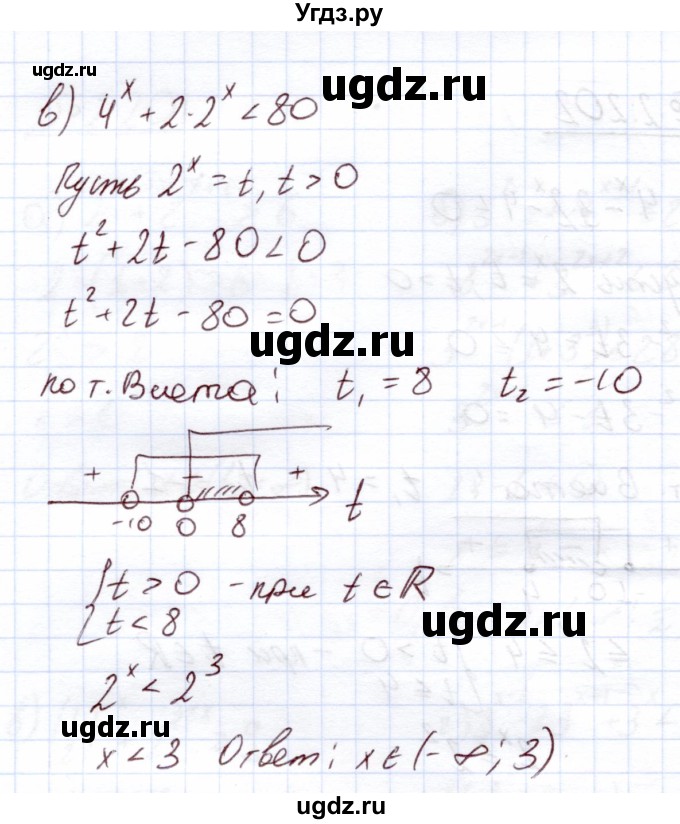 Угдз.ру
ugdz.ru
ugdz.ru
в) 4^x + 2·2^x < 80
Пусть 2^x = t, t > 0
ugdz.ru
t² + 2t - 80 < 0
t² + 2t - 80 = 0
ugdz.ru
по т. Виета: t₁ = 8 t₂ = -10
+ - +
-10 0 8 t
{ t > 0 - при t ∈ R
t < 8
ugdz.ru
2^x < 2³
ugdz.ru
x < 3 Ответ: x ∈ (-∞; 3)
ugdz.ru